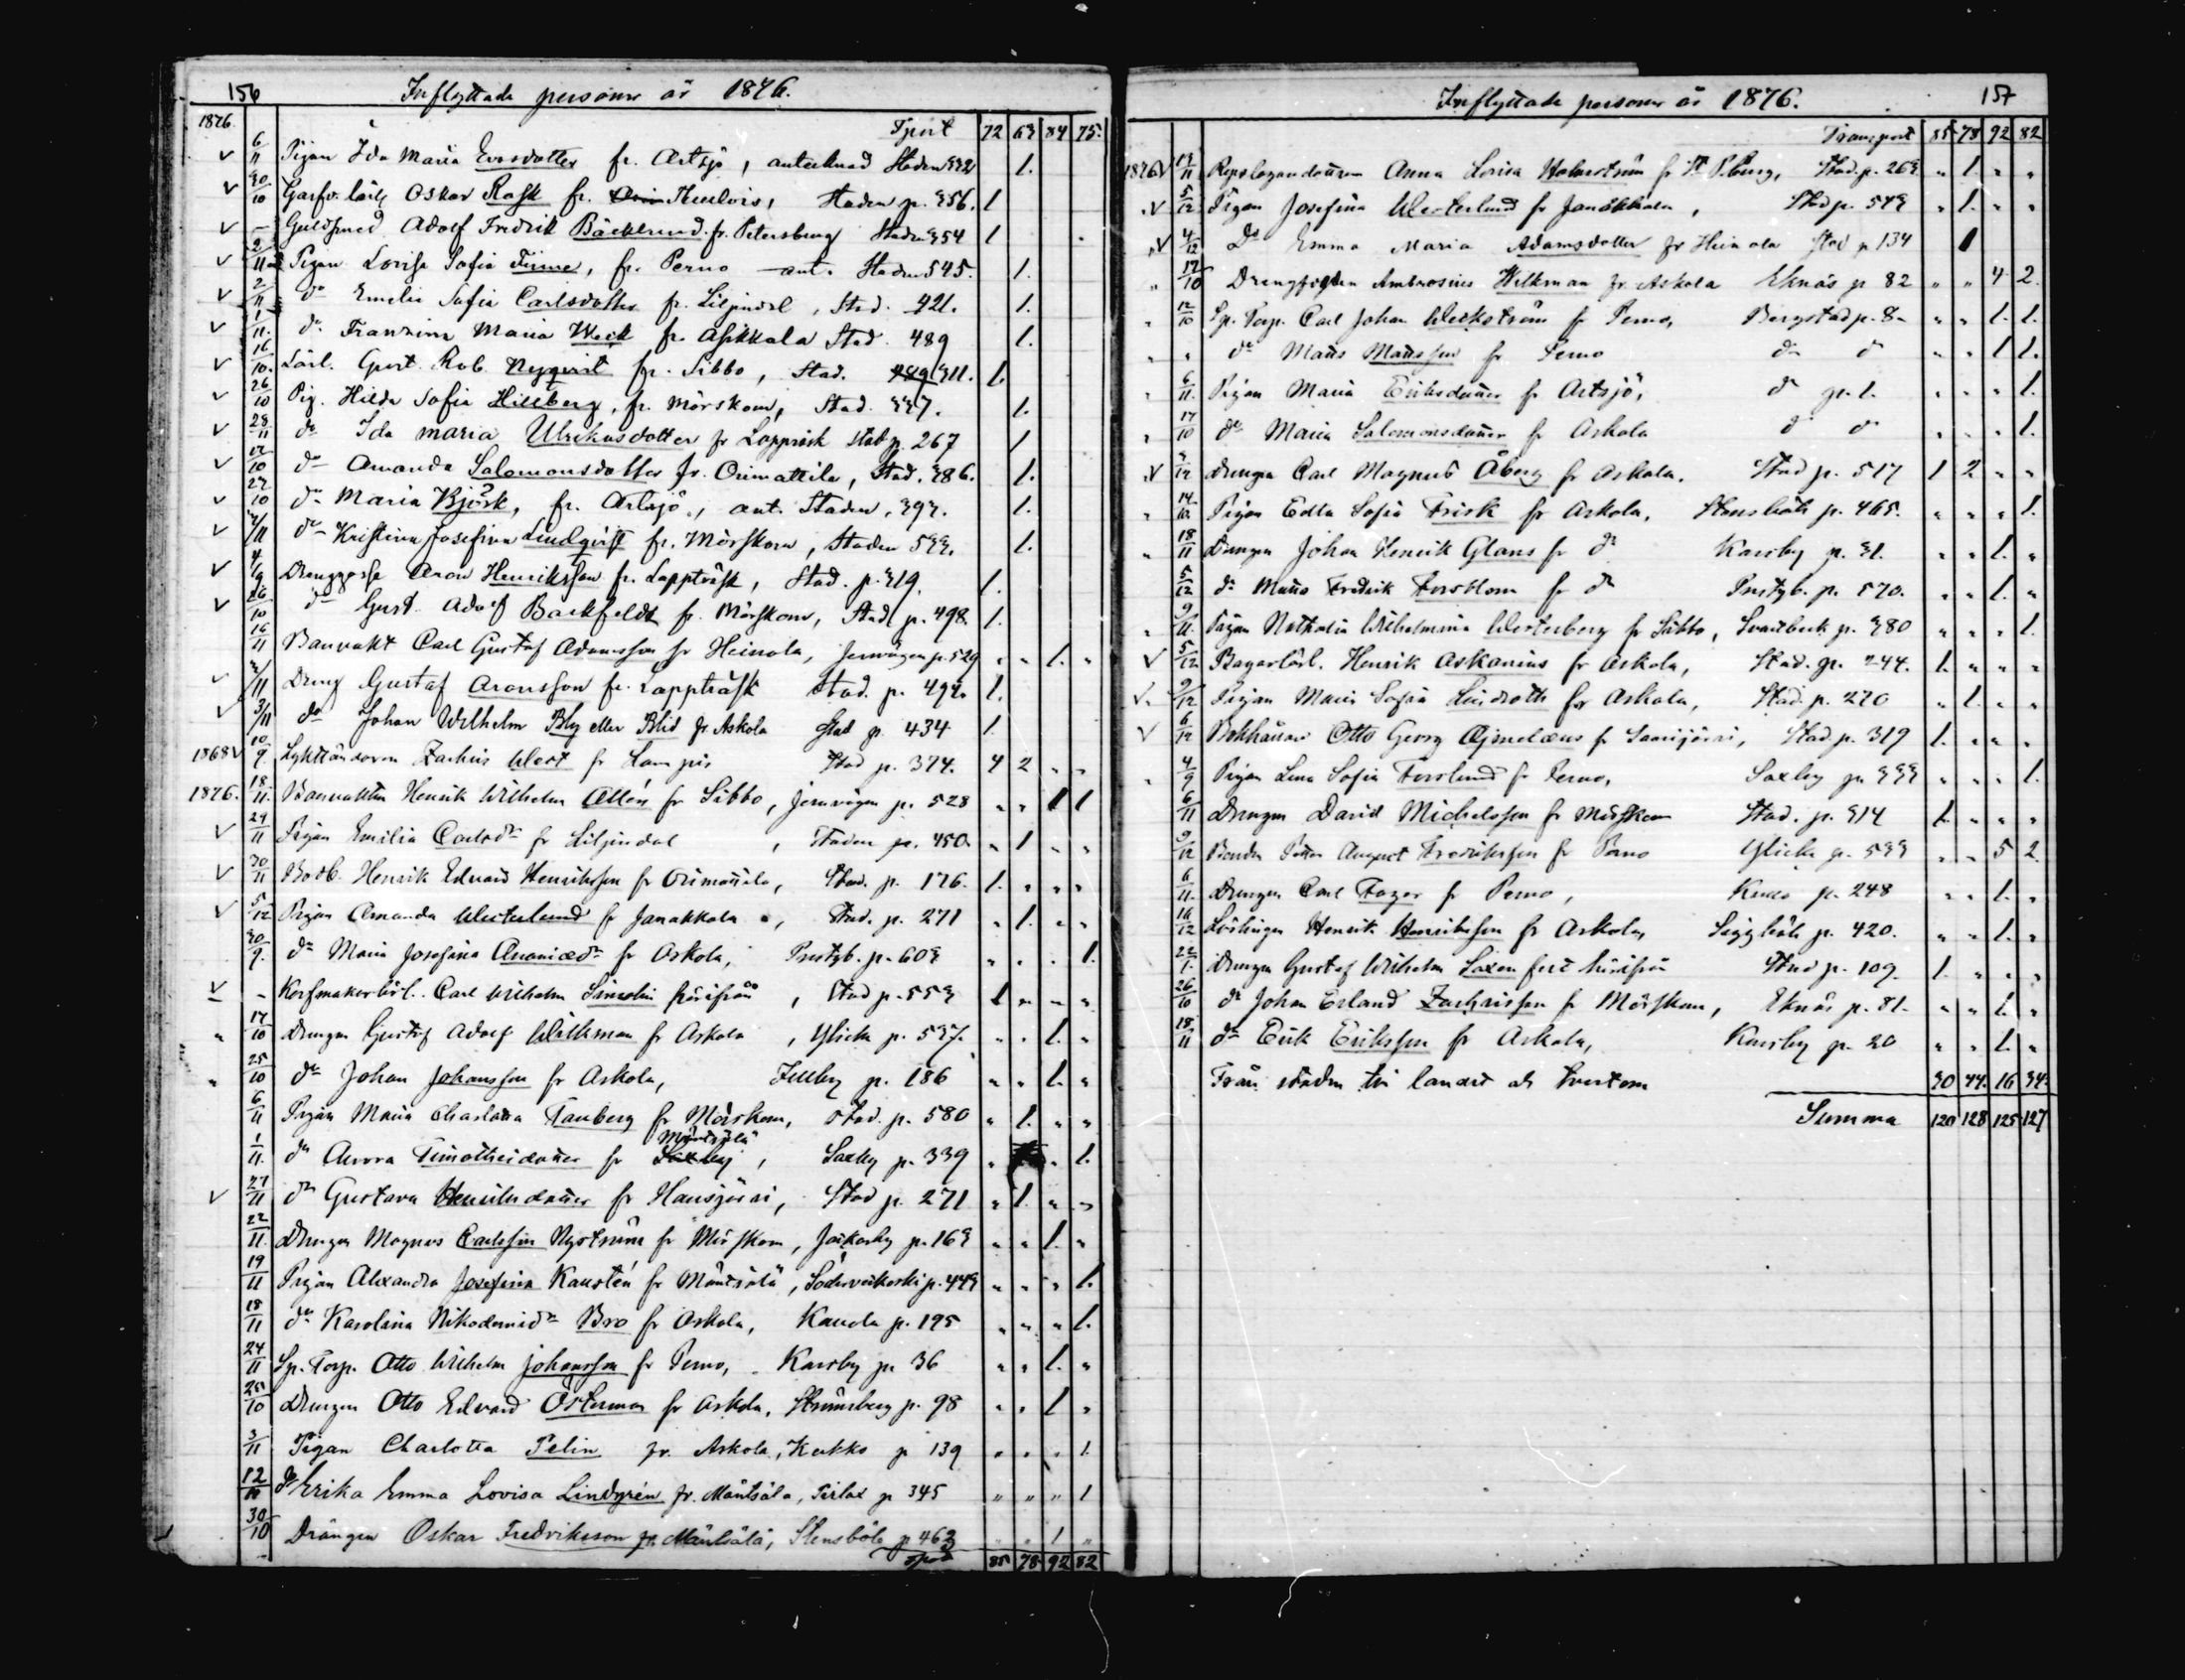 156 Inflyttade personer år 1876.
1876 Tport 72 63 84 75
6/11 Pigan Ida Maria Eversdotter fr. Artsjö, antecknad Staden 332 1.
30/10 Garfv. lärl. Oskar Rask fr. Staden p. 356. 1
Guldsmed Adolf Fredrik Bäcklund fr. Petersburg Staden 354 1
2/11 Pigan Lovisa Sofia Fiime, fr. Perno ant. Staden 545. 1.
2/11 do Emelie Sofia Carlsdotter fr. Liljendal, Stad. 421. 1.
1/11. do Franzina Maria Weck fr. Asikkala Stad. 489 1.
16/10. Lärl. Gust. Rob. Nyqvist fr. Sibbo, Stad. 311. 1.
26/10 Pig. Hilda Sofia Hillberg, fr. Mörskom, Stad. 337. 1.
28/11 do Ida Maria Ulrikasdotter fr Lappträsk stad p. 267 1
17/10 do Amanda Salomonsdotter fr. Orimattila, Stad. 386. 1.
27/10 do Maria Björk, fr. Artsjö, ant. Staden, 393. 1.
4/11 do Kristina Josefina Lindqvist fr. Mörskom, Staden 533. 1.
4/9 Drenggosse Aron Henriksson fr. Lappträsk, Stad. p. 319. 1.
26/10 do Gust. Adolf Backfeldt fr. Mörskom, Stad p. 498. 1.
16/11 Banvakt Carl Gustaf Adamsson fr Heinola, Jernvägen p. 529 " " 1. "
4/11 Dreng Gustaf Aronsson fr. Lappträsk Stad. p. 492. 1.
3/11 do Johan Wilhelm Bly eller Blid fr. Askola Stad p. 434 1
1868 10/9 Lykttändaren Zachris West fr Lampis Stad p. 374. 4 2 " "
1876. 18/11. Banvakten Henrik Wilhelm Allén fr Sibbo, Jernvägen p. 528 " " 1 1
24/11 Pigan Emilia Carlsdr fr Liljendal, Staden p. 450. " 1 " "
30/11 Henrik Edvard Henriksson fr Orimattila, Stad. p. 176. 1. " " "
5/12 Pigan Amanda Westerlund fr Janakkala, Stad. p. 271 " 1. " "
30/9. do Maria Josefina Ananiædr fr Askola, Prestgb. p. 603 " " " 1.
Korfmakerlärl. Carl Wilhelm Limolin härifrån, Stad p. 553 1 " " "
17/10 Drengen Gustaf Adolf Wilkman fr Askola, Ylicke p. 537. " " 1. "
25/10 do Johan Johansson fr Askola, Illby p. 186 " " 1. "
6/11 Pigan Maria Charlotta Fauberg fr Mörskom, Stad. p. 580 " 1. " "
1/11. do Aurora Timotheidotter fr Mäntsälä, Saxby p. 339 " " 1.
27/11 do Gustava Henriksdotter fr Hausjärvi, Stad p. 271 " 1. " "
22/11. Drengen Magnus Carlsson Nyström fr Mörskom, Jackarby p. 163 " " 1. "
19/11 Pigan Alexandra Josefina Kaustén fr Mäntsälä, Söderveikoski p. 443 " " " 1.
18/11 do Karolina Nikodemidr Bro fr Askola, Kauola p. 195 " " " 1.
24/11 Sp. Torp. Otto Wilhelm Johansson fr Perno, Karsby p. 36 " " 1. "
25/10 Drengen Otto Edvard Österman fr Askola, Strömsberg p. 98 " " 1 "
3/11 Pigan Charlotta Pelin fr. Askola, Kukko p 139 " " " 1.
12/11 do Erika Emma Lovisa Lindgrén fr. Mäntsälä, Pirlax p 345 " " " 1
30/10 Drängen Oskar Fredriksson fr. Mäntsälä, Stensböle p 463 " " 1 "
Tport 85 78 92 82
Inflyttade personer år 1876. 157
Transport 85 78 92 82
1876 14/11 Repslagaredottren Anna Lovisa Holmström fr St P.burg, Stad. p. 263 " 1. " "
5/12 Pigan Josefina Westerlund fr Janakkala, Stad p. 543 " 1. " "
4/12 Do Emma Maria Adamsdotter fr Heinola Stad p 134 1
17/10 Ambrosius Wilkman fr. Askola Eknäs p 82 " " 4 2.
12/10 Sp. Torp. Carl Johan Weckström fr Perno, Bergstad p. 8 " " 1. 1.
" do Måns Månsson fr Perno do do " " 1 1.
6/11. Pigan Maria Eriksdotter fr Artsjö, do p. 1. " " " 1.
17/10 do Maria Salomonsdotter fr Askola do do " " " 1.
Drengen Carl Magnus Åberg fr Askola. Stad p. 517 1 2 " "
14/10. Pigan Edla Sofia Frisk fr Askola, Stensböle p. 465. " " " 1.
18/11 Drengen Johan Henrik Glans fr do Karsby p. 31. " " 1. "
5/12 do Måns Fredrik Forsblom fr do Prestgb. p. 570. " " 1. "
9/11. Pigan Nathalia Wilhelmina Westerberg fr Sibbo, Svartbeck p. 380 " " " 1.
5/12 Bagarlärl. Henrik Askanius fr Askola, Stad. p. 244. 1. " " "
9/12 Pigan Maria Sofia Lindroth fr Askola, Stad. p. 270 " 1. " "
6/12 Bokhållaren Otto Georg Ajmelæus fr Saarijärvi, Stad. p. 319 1. " " "
4/9 Pigan Lena Sofia Forslund fr Perno, Saxby p. 333 " " " 1.
6/11 Drengen David Michelsson fr Mörskom Stad. p. 314 1. " " "
9/12 Bonden Petter August Fredriksson fr Perno Ylicke p. 533 " " 5 2.
6/11. Drengen Carl Fager fr Perno, p. 248 " " 1. "
16/12 Löskingen Henrik Henriksson fr Askola, Siggböle p. 420. " " 1. "
22/1. Drengen Gustaf Wilhelm Saxen härifrån Stad p. 109 1. " " "
26/10 do Johan Erland Zachrisson fr Mörskom, Eknäs p. 81. " " 1. "
18/11 do Erik Eriksson fr Askola, Karsby p. 20 " " 1. "
Från staden till landet och tvertom 30 44. 16 34.
Summa 120 128 125 127